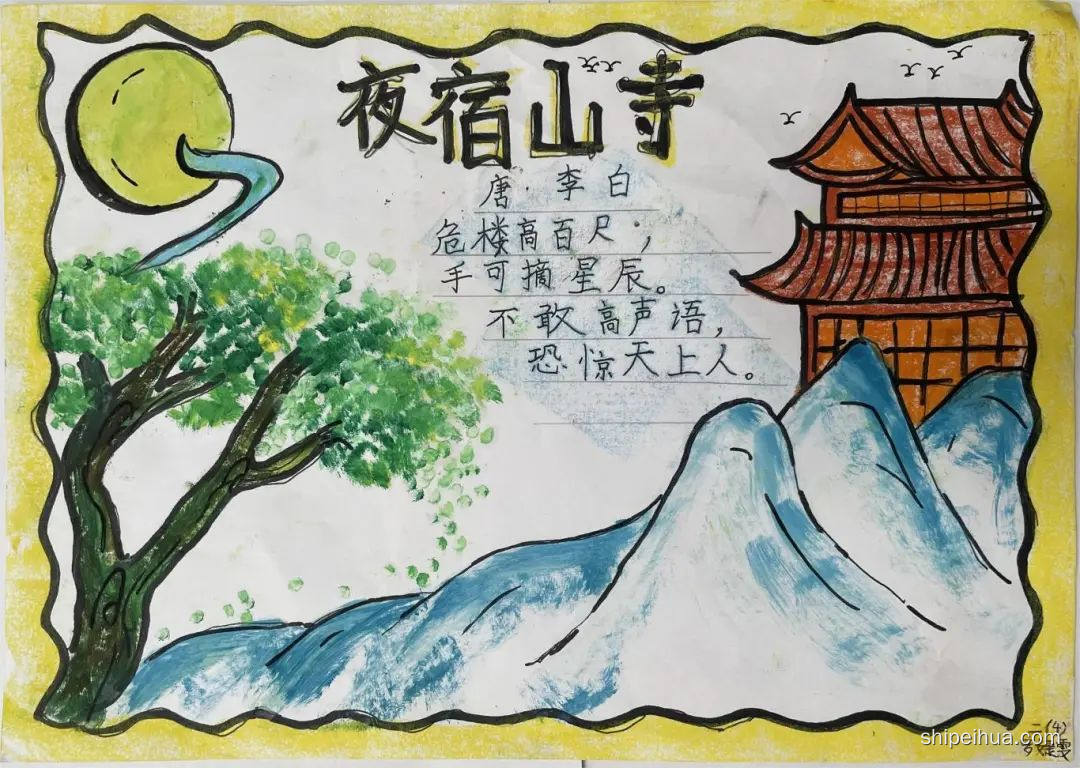 夜宿山寺
唐·李白
危楼高百尺，
手可摘星辰。
不敢高声语，
恐惊天上人。
二(4)
shipeihua.com